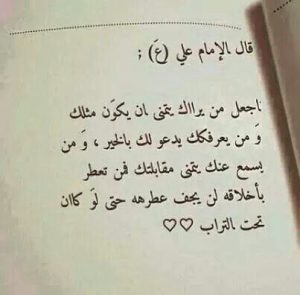 قال الإمام علي (عَ) ;
اجعل من يرااك يتمنى ان يكوَن مثلك
وَ من يعرفكك يدعو لك بالخير ، وَ من
يسمع عنك يتمنى مقابلتك فمن تعطر
بأخلاقه لن يجف عطرهه حتى لوَ كاان
تحت التراب ♡♡